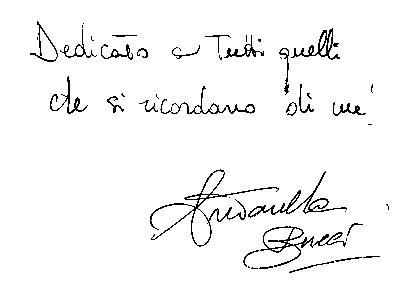 Dedicato a Tutti quelli
che si ricordano di me!
Antonella
Bucci